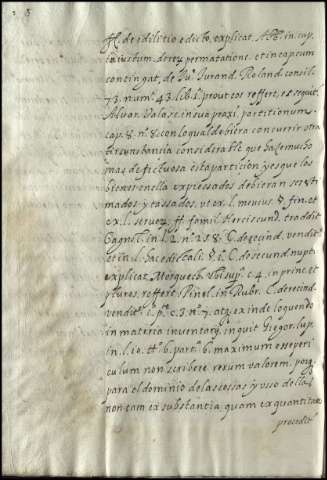 ff. de edilitio edicto, explicat Abb. in cap.
cui vstum. de rer. permutatione. et in cap. cum
contingat, de Ju. Jurand. Roland. consil.
73. num. 43. lib. 1. prout eos reffert, et seguit
Alvar. Valasc. in sua praxi. partitionum
cap. 8. n. 8. con lo qual debiera concurrir otra
circunstancia considerable que haze mucho
mas defictuosa esta particion, y es que los
bienes en ella expressados debieran ser esti
mados y tassados, vt ex l. menius. § fin. et
ex l. seruos, ff. famil. Herciscund. traddit
in l. 2. n. 258. C. de rescind. vendit.
et in l. hac edictali. § 1. C. de secund. nupt.
explicat c. 4. in princ. et
plures, reffere Pinel. in Rubr. C. de rescind.
vendit. 1. p. c. 3. n. 7. atq. ex inde loquendo
in materia inventarij, inquit Gregor. lup.
in l. 10. tt. 6. part. 6. maximum esse peri
culum non scribere rerum valorem, porq.
para el dominio de las cossas y vsso dellas
non tam ex substantia quam ex quantitate
procedit